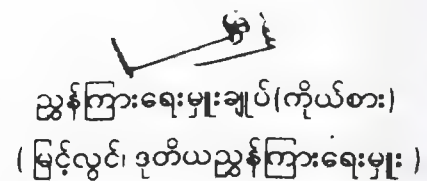 ညွှန်ကြားရေးမှူးချုပ်(ကိုယ်စား)
( မြင့်လွင်၊ ဒုတိယညွှန်ကြားရေးမှူး )